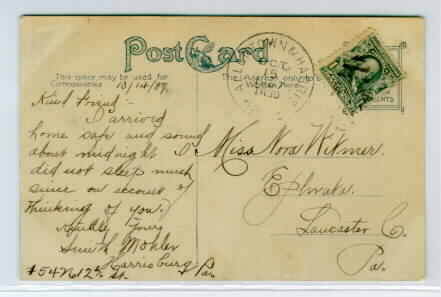 Post Card
This space may be used for
Correspondence
The Address only to be
Written Here
ALLENTOWN & HARR
OCT
15
R.P.O.
CENTS
10/14/07.
Kind Friend:-
I arrived
home safe and sound
about midnight I
did not sleep much
since on account of
thinking of you.
Yours
Smith Mohler
Harrisburg Pa
1542 N 12th St.
Miss Nora Witmer.
Ephrata.
Lancaster C.
Pa.